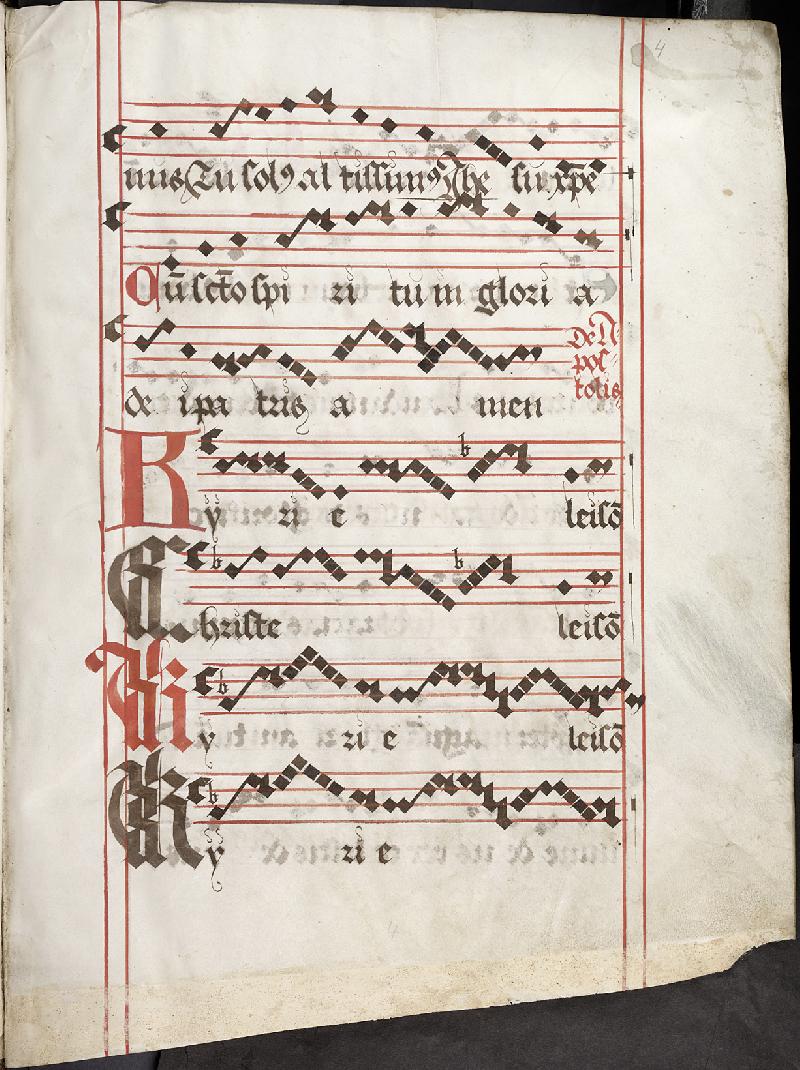 4
nus Tu solꝰ al tissimꝰ Ihe su xp̄e
Cū scto spi ri tu in glori a
de ipa tris a men
De A
pos
tolis
Ky ri e leisō
Christe leisō
Ky ri e leisō
Ky ri e